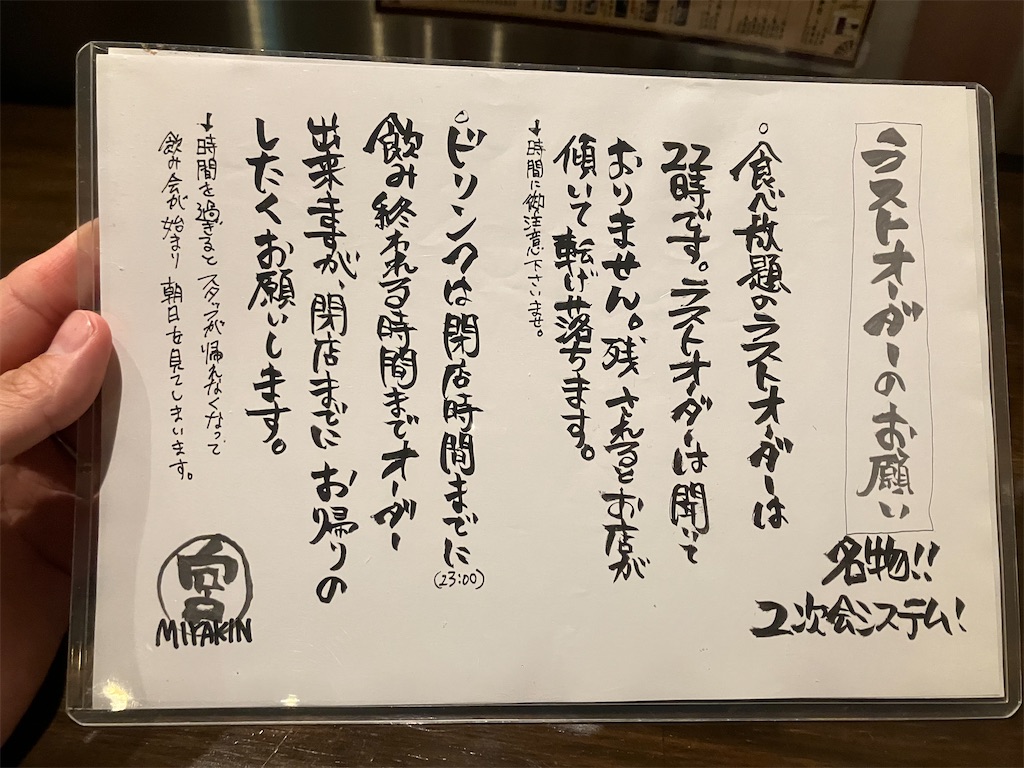 ラストオーダーのお願い
名物!!
2次会システム!
○食べ放題のラストオーダーは
22時です。ラストオーダーは聞いて
おりません。残されるとお店が
傾いて転げ落ちます。
→時間に御注意下さいませ。
○ドリンクは閉店時間までに
(23:00)
飲み終われる時間までオーダー
出来ますが、閉店までにお帰りの
したくお願いします。
→時間を過ぎるとスタッフが帰れなくなって
飲み会が始まり朝日を見てしまいます。
宮
MIYAKIN